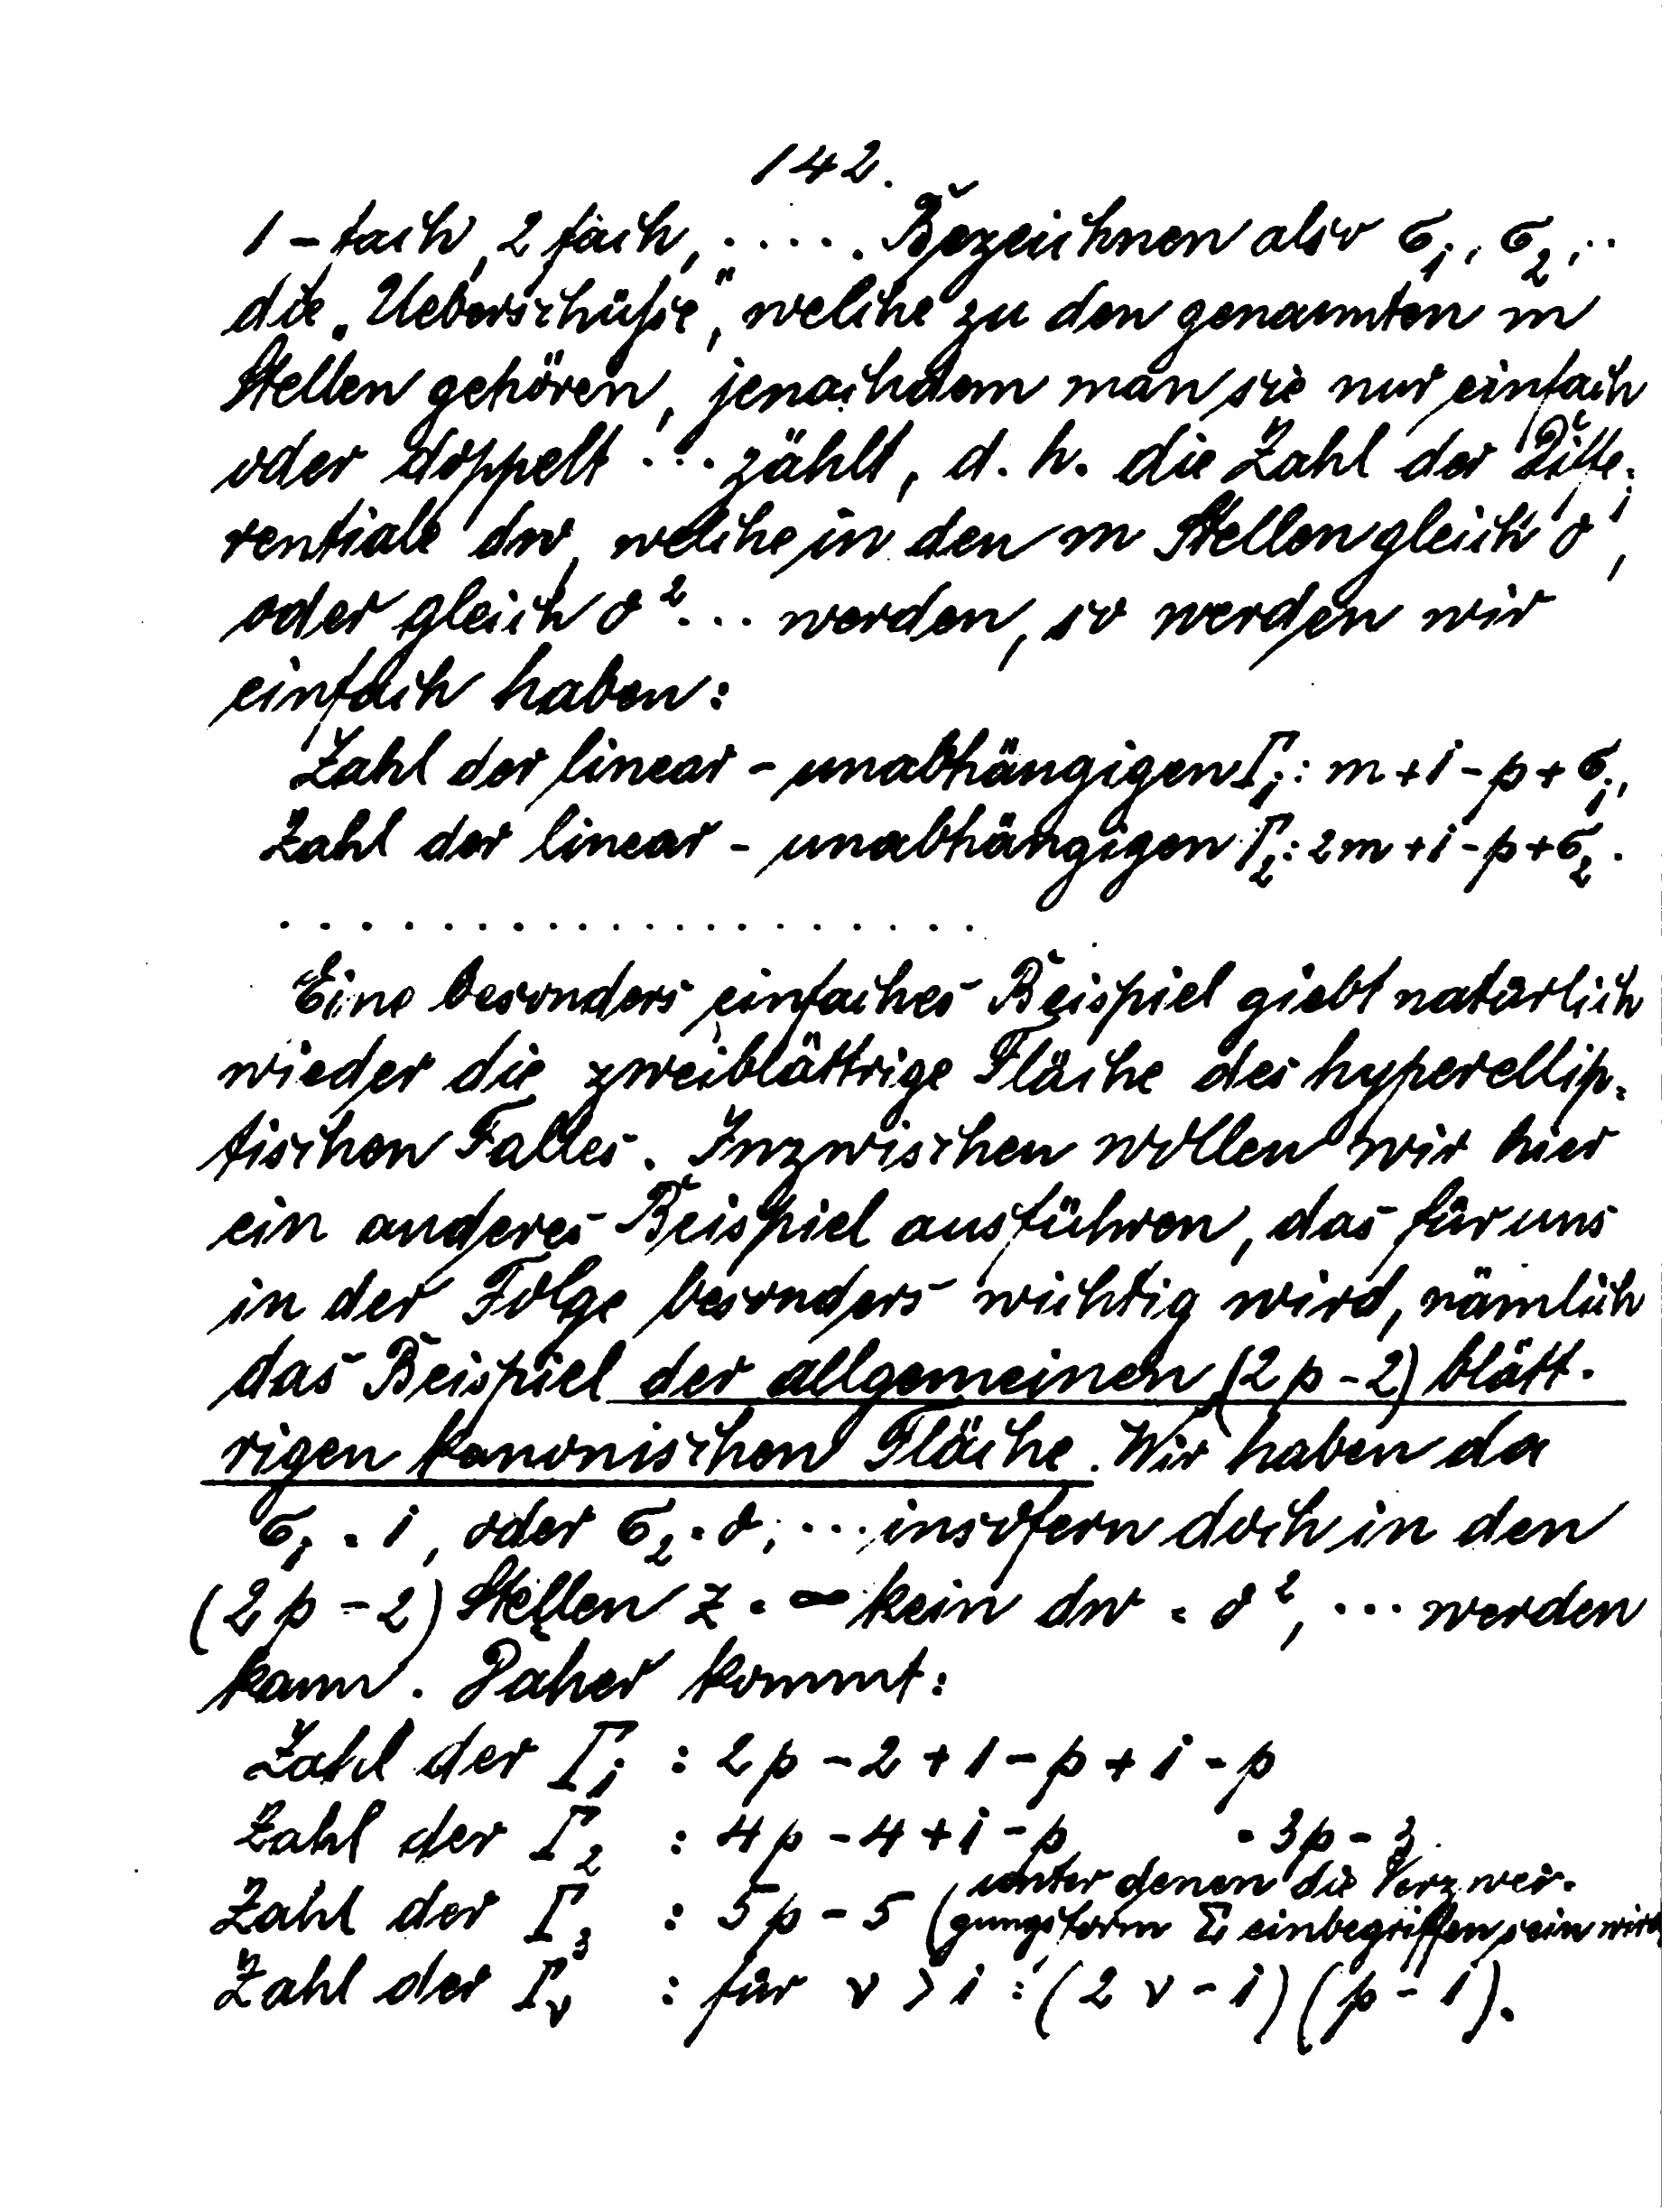 142.
1-fach, 2 fach, ..... Bezeichnen also σ₁, σ₂, ..
die „Ueberschüße“, welche zu den genannten m
Stellen gehören, jenachdem man sie nur einfach
oder doppelt ... zählt, d. h. die Zahl der Diffe-
rentiale dw, welche in den m Stellen gleich 0¹,
oder gleich 0² ... werden, so werden wir
einfach haben:
Zahl der linear - unabhängigen Γ₁: m + 1 - p + σ₁,
Zahl der linear - unabhängigen Γ₂: 2m + 1 - p + σ₂.
. . . . . . . . . . . . . . . . . . .
Eine besonders einfaches Beispiel giebt natürlich
wieder die zweiblättrige Fläche des hyperellip-
tischen Falles. Inzwischen wollen wir hier
ein anderes Beispiel ausführen, das für uns
in der Folge besonders wichtig wird, nämlich
das Beispiel der allgemeinen (2p-2) blätt-
rigen kanonischen Fläche. Wir haben da
σ₁ = 1, oder σ₂ = 0, ... insofern doch in den
(2p-2) Stellen z = ∞ kein dw = 0², ... werden
kann. Daher kommt:
Zahl der Γ₁ : 2p - 2 + 1 - p + 1 = p
Zahl der Γ₂ : 4p - 4 + 1 - p = 3p - 3.
Zahl der Γ₃ : 5p - 5 (unter denen die Verzwei-
gungsform Σ einbegriffen sein wird)
Zahl der Γᵥ : für ν > 1 : (2ν - 1)(p - 1).